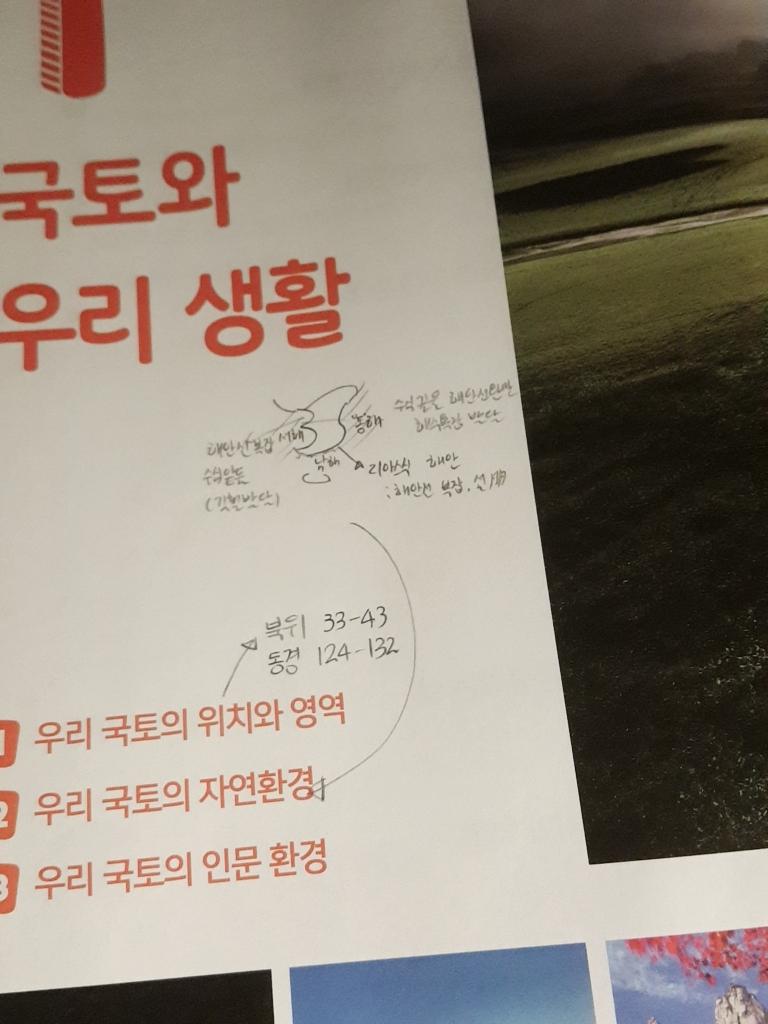 국토와
우리 생활
동해
서해
남해
수심 깊음 해안선 단순
해수욕장 발달
해안선 복잡
수심 얕음
(갯벌 발달)
리아스식 해안
: 해안선 복잡, 섬
북위 33-43
동경 124-132
1 우리 국토의 위치와 영역
2 우리 국토의 자연환경
3 우리 국토의 인문 환경